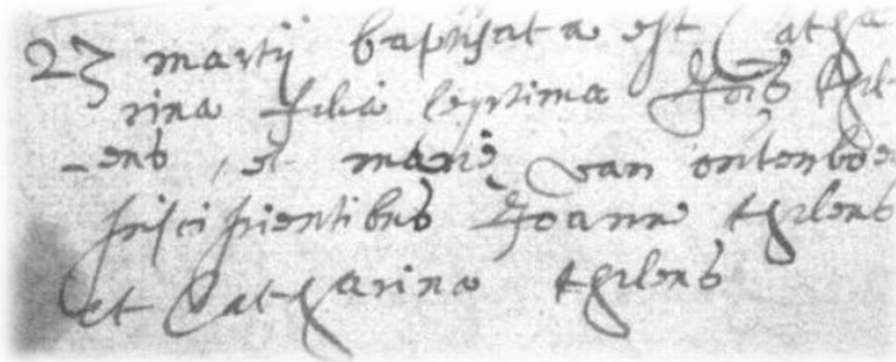 23 martij baptisata est Catha
rina filia legitima Jois thil
-ens, et marie van ostenboe
suscipientibus Joanne thilens
et Catharina thilens